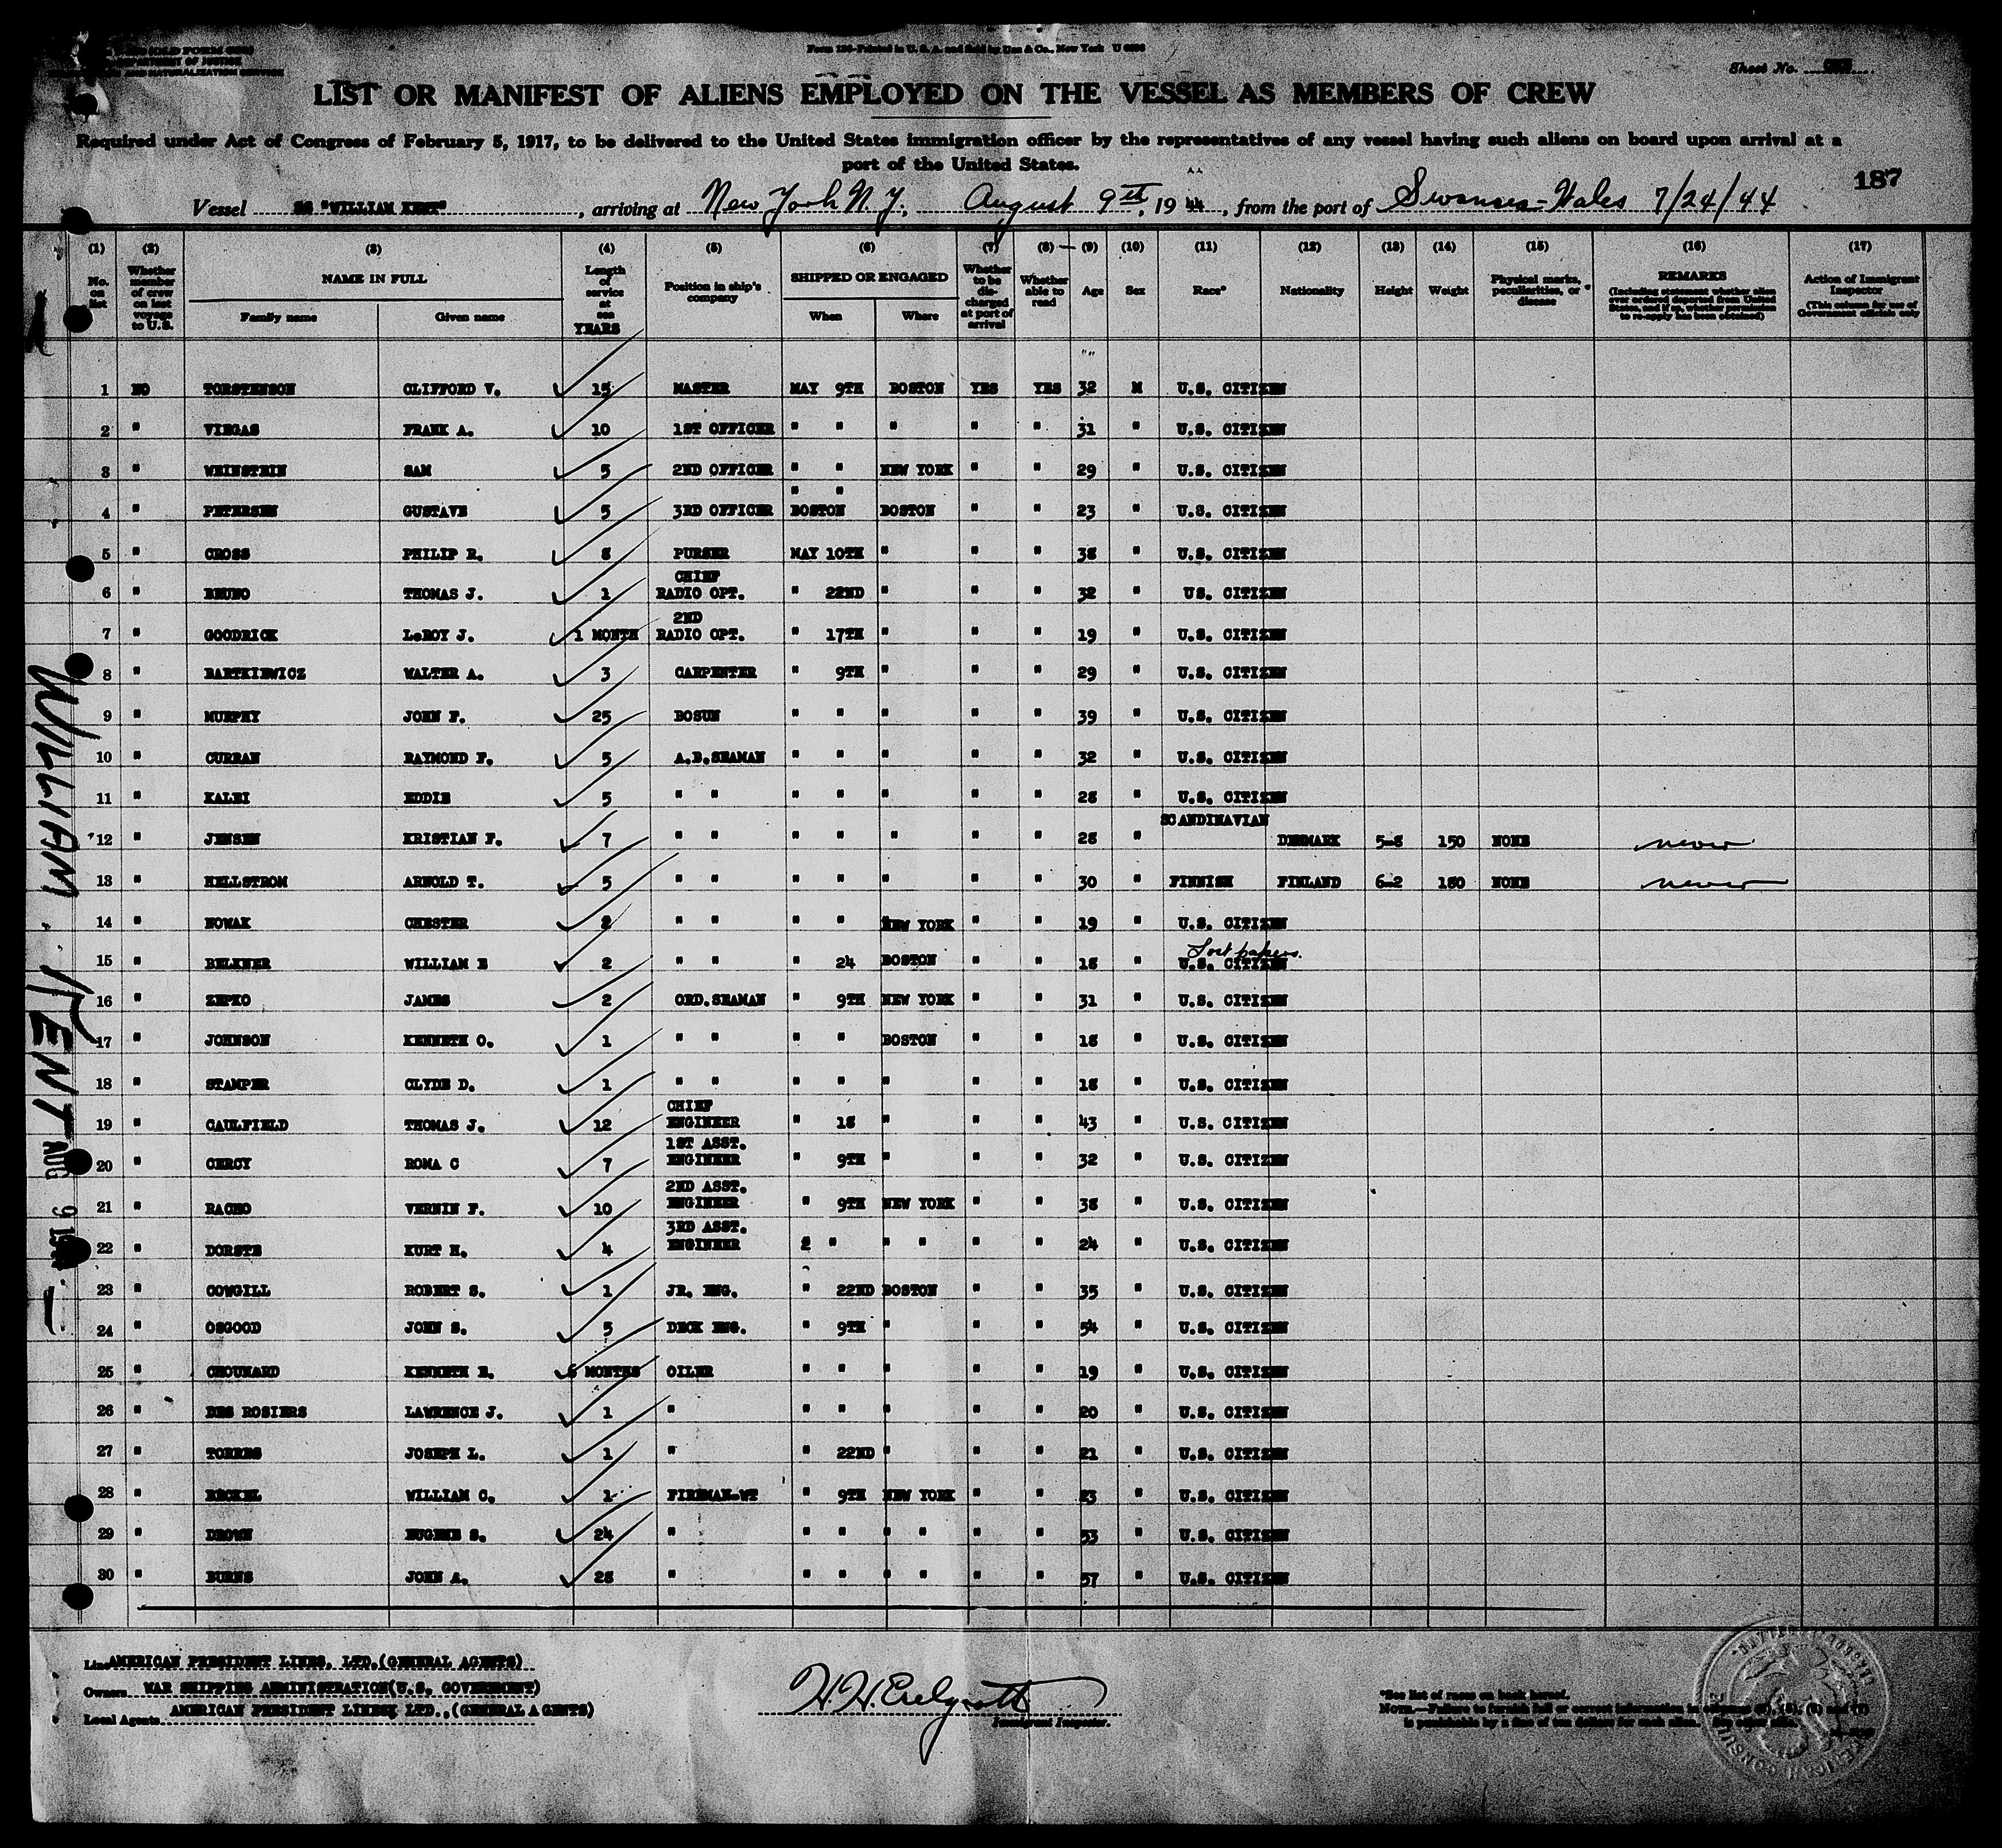 Form 126-Printed in U. S. A. and Sold by Unz & Co., New York
Sheet No.
LIST OR MANIFEST OF ALIENS EMPLOYED ON THE VESSEL AS MEMBERS OF CREW
Required under Act of Congress of February 5, 1917, to be delivered to the United States immigration officer by the representatives of any vessel having such aliens on board upon arrival at a
port of the United States.
187
Vessel SS "WILLIAM KENT", arriving at New York N.Y., August 9th, 1944, from the port of Swansea-Wales 7/24/44
(1) (2) (3) (4) (5) (6) (7) (8) (9) (10) (11) (12) (13) (14) (15) (16) (17)
No. on list Whether member of crew on last voyage to U.S. NAME IN FULL Family name Given name Length of service at sea YEARS Position in ship's company SHIPPED OR ENGAGED When Where Whether to be discharged at port of arrival Whether able to read Age Sex Race* Nationality Height Weight Physical marks, peculiarities, or disease REMARKS (Including statement whether alien ever ordered deported from United States, and if so, whether permission to re-apply has been obtained) Action of Immigrant Inspector (This column for use of Government officials only
1 NO TORSTENSON CLIFFORD V. 15 MASTER MAY 9TH BOSTON YES YES 32 M U.S. CITIZEN
2 " VIEGAS FRANK A. 10 1ST OFFICER " " " " " 31 " U.S. CITIZEN
3 " WEINSTEIN SAM 5 2ND OFFICER " " NEW YORK " " 29 " U.S. CITIZEN
" "
4 " PETERSEN GUSTAVE 5 3RD OFFICER BOSTON BOSTON " " 23 " U.S. CITIZEN
5 " CROSS PHILIP R. 8 PURSER MAY 10TH " " " 38 " U.S. CITIZEN
6 " BRUNO THOMAS J. 1 CHIEF RADIO OPT. " 22ND " " " 32 " US. CITIZEN
7 " GOODRICK LeROY J. 1 MONTH 2ND RADIO OPT. " 17TH " " " 19 " U.S. CITIZEN
8 " BARTKIEWICZ WALTER A. 3 CARPENTER " 9TH " " " 29 " U.S. CITIZEN
9 " MURPHY JOHN F. 25 BOSUN " " " " " 39 " U.S. CITIZEN
10 " CURRAN RAYMOND F. 5 A.B.SEAMAN " " " " " 32 " U.S. CITIZEN
11 " KALEI EDDIE 5 " " " " " " " 28 " U.S. CITIZEN
12 " JENSEN KRISTIAN F. 7 " " " " " " " 28 " SCANDINAVIAN DENMARK 5-8 150 NONE never
13 " HELLSTROM ARNOLD T. 5 " " " " " " " 30 " FINNISH FINLAND 6-2 180 NONE never
14 " NOWAK CHESTER 2 " " " " NEW YORK " " 19 " U.S. CITIZEN
Lost papers.
15 " BELKNER WILLIAM E 2 " " " 24 BOSTON " " 18 " U.S. CITIZEN
16 " ZEPKO JAMES 2 ORD.SEAMAN " 9TH NEW YORK " " 31 " U.S. CITIZEN
17 " JOHNSON KENNETH O. 1 " " " " BOSTON " " 18 " U.S. CITIZEN
18 " STAMPER CLYDE D. 1 " " " " " " " 18 " U.S. CITIZEN
19 " CAULFIELD THOMAS J. 12 CHIEF ENGINEER " 18 " " " 43 " U.S. CITIZEN
20 " CERCY ROMA C 7 1ST ASST. ENGINEER " 9TH " " " 32 " U.S. CITIZEN
21 " RACHO VERNIN F. 10 2ND ASST. ENGINEER " 9TH NEW YORK " " 38 " U.S. CITIZEN
22 " DORSTE KURT H. 4 3RD ASST. ENGINEER " " " " " 24 " U.S. CITIZEN
23 " COWGILL ROBERT S. 1 JR. ENG. " 22ND BOSTON " " 35 " U.S. CITIZEN
24 " OSGOOD JOHN S. 5 DECK ENG. " 9TH " " " 54 " U.S. CITIZEN
25 " CHOUNARD KENNETH R. 6 MONTHS OILER " " " " " 19 " U.S. CITIZEN
26 " DES ROSIERS LAWRENCE J. 1 " " " " " " 20 " U.S. CITIZEN
27 " TORRES JOSEPH L. 1 " " 22ND " " " 21 " U.S. CITIZEN
28 " BECKEL WILLIAM C. 1 FIREMAN-WT " 9TH NEW YORK " " 23 " U.S. CITIZEN
29 " DROWN EUGENE S. 24 " " " " " " " 53 " U.S. CITIZEN
30 " BURNS JOHN A. 28 " " " " " " " 57 " U.S. CITIZEN
WILLIAM KENT
AUG 9 1944
Line AMERICAN PRESIDENT LINES, LTD.(GENERAL AGENTS)
Owners WAR SHIPPING ADMINISTRATION(U.S. GOVERNMENT)
Local Agents AMERICAN PRESIDENT LINES, LTD.,(GENERAL AGENTS)
Immigrant Inspector.
*See list of races on back hereof.
NOTE.—Failure to furnish full or correct information in columns (2), (5), (6) and (7)
is punishable by a fine of ten dollars for each alien.